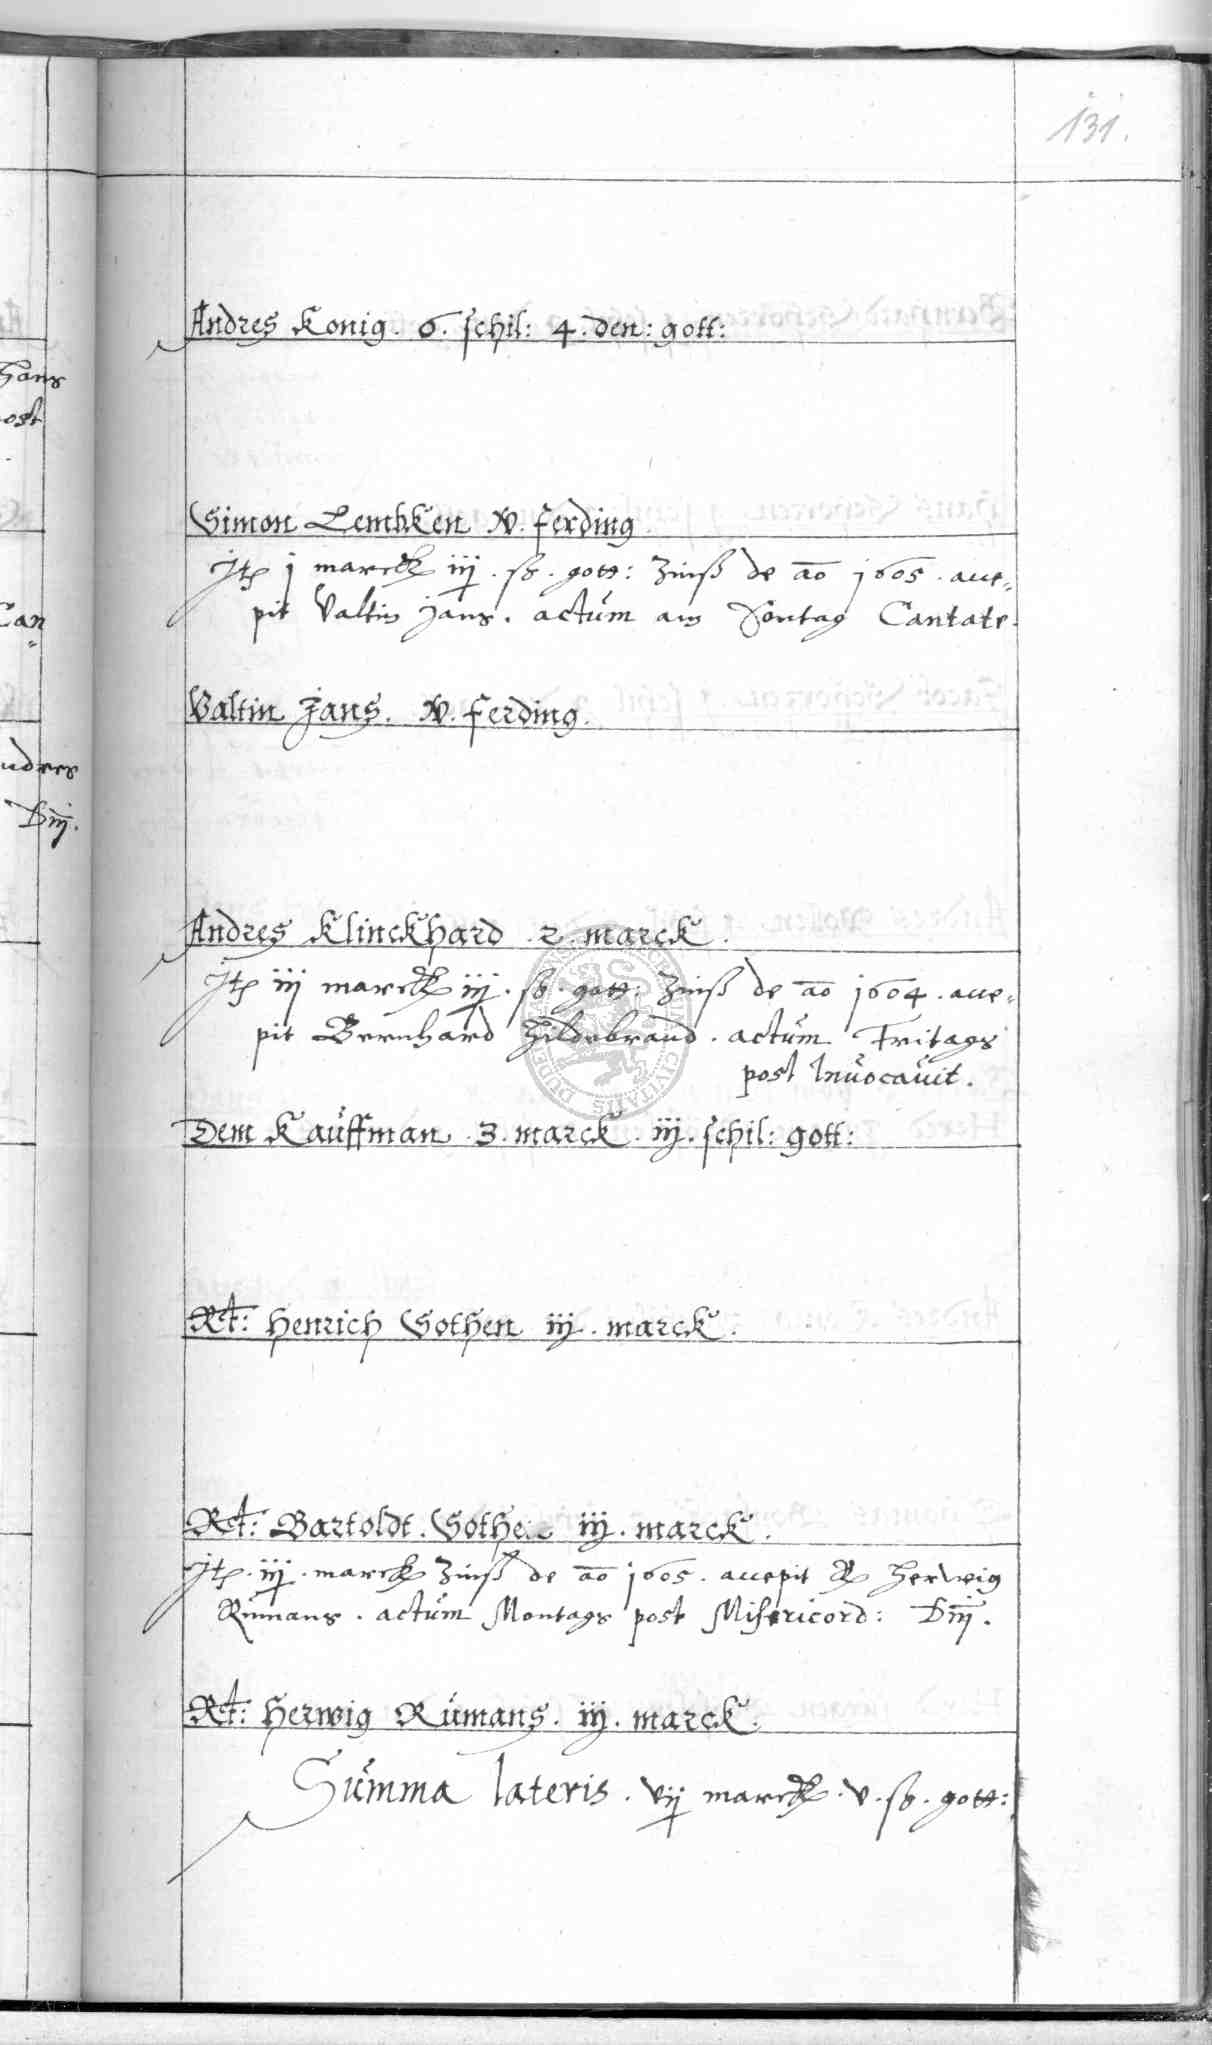 131.
Andres Konig. 6. schil: 4. den: gott:
Simon Lembken v. ferding.
Jt 1 marck iij. ß. gott: Zinß de ao 1605. acce=
pit Valtin Jans. actum am Sontag Cantate.
Valtin Jans. v. ferding.
Andres Klinckhard. 2. marck.
Jt iij marck iij. ß. gott: Zinß de ao 1604. acce=
pit Bernhard Hildebrand. actum Fritags
post Invocavit.
Dem Kauffman. 3. marck. iij. schil: gott:
Rt: Henrich Gothen iij. marck.
Rt: Bartoldt. Gothe iij. marck.
Jt. iij. marck Zinß de ao 1605. accepit R Herwig
Rumans. actum Montags post Misericord: Dnj.
Rt: Herwig Rumans. iij. marck.
Summa lateris. vij marck. v. ß. gott:
Hans
ost
Can=
ndres
Dnj.